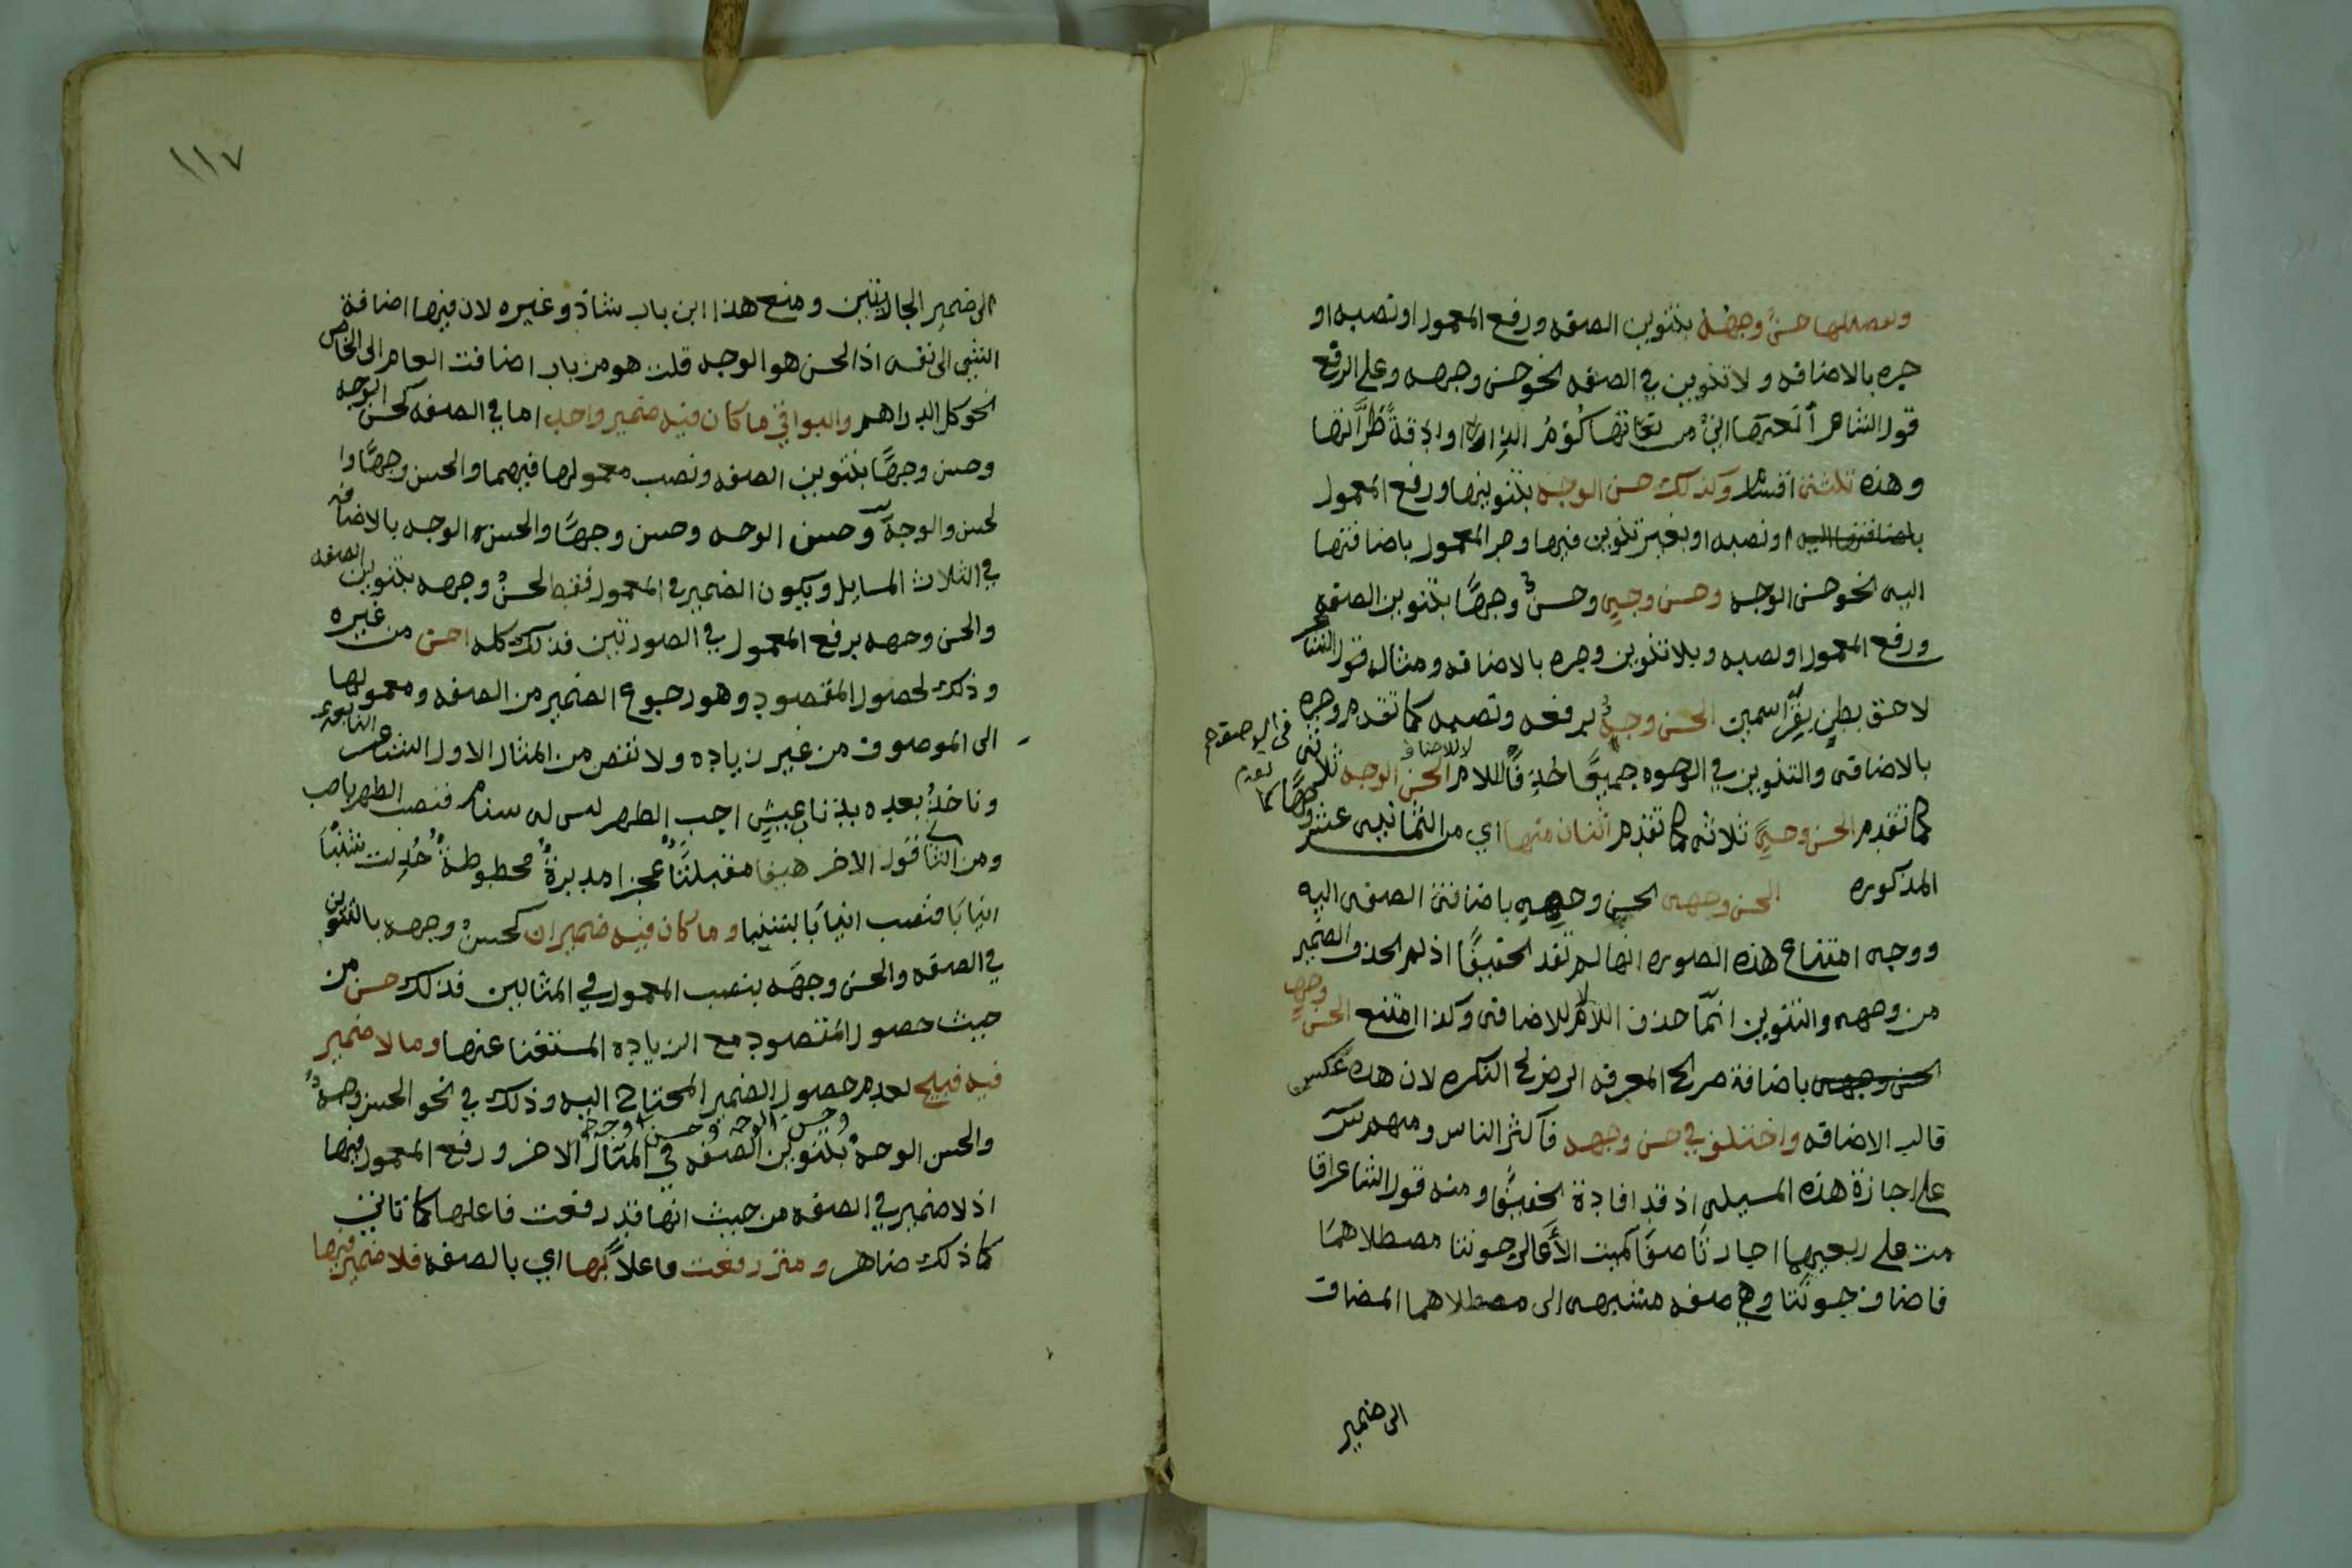 وتفصيلها حسنٌ وجهُهُ بتنوين الصفه ورفع المعمول او نصبه او
جره بالاضافه ولا تنوين في الصفه نحو حسن وجهه وعلى الرفع
قول الشاعر
وهذه ثلثة اقسام وكذلك حسن الوجه بتنوينها ورفع المعمول
باضافتها اليه او نصبه او بغير تنوين فيها وجر المعمول باضافتها
اليه نحو حسن الوجه وحسن وجهٍ وحسنٌ وجهًا بتنوين الصفه
ورفع المعمول او نصبه وبلا تنوين وجره بالاضافه ومثاله قول الشاعر
لاحق بطنٍ بقرًا سمين الحسن وجهُه برفعه ونصبه كما تقدم وجره
بالاضافه والتنوين في الوجوه جميعًا حُذِفَا للام لا للاضافه الحسن الوجه ثلاثه
كما تقدم الحسن وجهٍ ثلاثه كما تقدم اثنان منها اي من الثمانيه عشر وجهًا كما
المذكوره الحسن وجهه الحسن وجهِهِ باضافة الصفه اليه
ووجه امتناع هذه الصوره انها لم تفد تخفيفًا اذ لم تحذف الضمير
من وجهه والتنوين انمّا حذف للام لا للاضافه وكذا امتنع الحسن وجهٍ
الحسن وجهه باضافة صريح المعرفه الى صريح النكره لان هذه عكس
قالب الاضافه واختلف في حسن وجهه فأكثر الناس ومنهم س
على اجازة هذه المسيله اذ قد افادة تخفيفًا ومنه قول الشاعر اقا
مت على ربعيهما جارتا صفًا كميت الأعالي جونتا مصطلاهما
فاضاف جونتا وهي صفه مشبهه الى مصطلاهما المضاف
الى ضمير
١١٧
الى ضمير الجارتين ومنع هذا ابن باب شاذ وغيره لان فيها اضافة
الشي الى نفسه اذ الحسن هو الوجه قلت هو من باب اضافت العام الى الخاص
نحو كل الدراهم والبواقي ما كان فيه ضمير واحد اما في الصفه كحسن الوجه
وحسن وجهًا بتنوين الصفه ونصب معمولها فيهما والحسن وجهًا وا
لحسن والوجهَ وحسن الوجه وحسن وجهًا والحسن الوجه بالاضافه
في الثلاث المسايل ويكون الضمير في المعمول فقط كحسنٌ وجهه بتنوين الصفه
والحسن وجهه برفع المعمول في الصورتين فذلك كله احسن من غيره
وذلك لحصول المقصود وهو رجوع الضمير من الصفه ومعمولها
الى الموصوف من غير زياده ولا نقص من المثال الاول الشاعر النابغه
وناخذُ بعده بذناب عيشٍ اجب الظهر ليس له سنام فنصب الظهر باجب
ومن الثاني قول الاخر هيفا مقبلتًا عجزا مدبرةٌ محطوطةٌ جُدِلت شنبًا
انيابًا فنصب انيابًا بشنبا وما كان فيه ضميران كحسنٌ وجهه بالتنوين
في الصفه والحسن وجهَه بنصب المعمول في المثالين فذلك حسن من
حيث حصول المقصود مع الزياده المستغنا عنها وما لا ضمير
فيه قبيح لعدم حصول الضمير المحتاج اليه وذلك في نحو الحسن وجهٌ
وحسن الوجه وحسن وجه
والحسن الوجهُ بتنوين الصفه في المثال الاخر ورفع المعمول فيها
اذ لا ضمير في الصفه من حيث انها قد رفعت فاعلها كما تاتي
كما ذلك ضاهر ومتى رفعت فاعلاً بها اي بالصفه فلا ضمير فيها